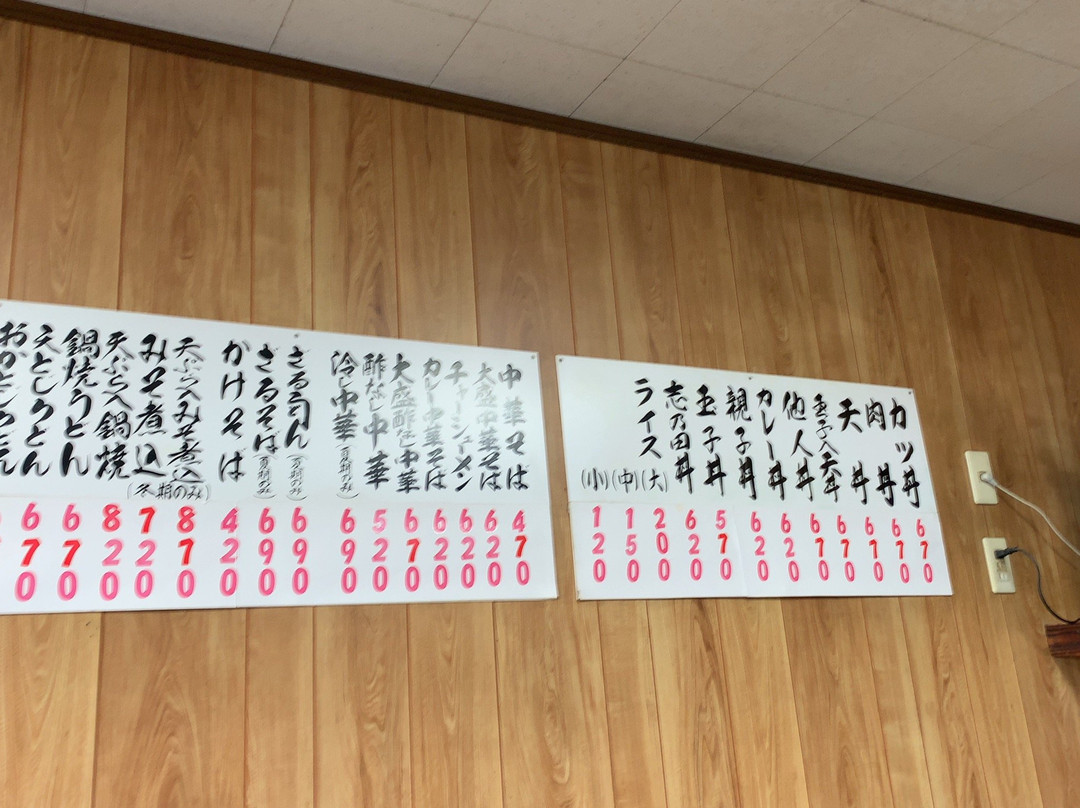 カツ丼 670
肉丼 670
天丼 670
玉子入天丼 670
他人丼 670
カレー丼 620
親子丼 620
玉子丼 570
志乃田丼 620
ライス (大) 200
(中) 150
(小) 120
中華そば 470
大盛中華そば 620
チャーシューメン 620
カレー中華そば 620
大盛酢なし中華 670
酢なし中華 520
冷し中華 (夏期のみ) 690
ざるうどん (夏期のみ) 690
ざるそば (夏期のみ) 690
かけそば 420
天ぷら入みそ煮込 870
みそ煮込 720
(冬期のみ)
天ぷら入鍋焼 820
鍋焼うどん 670
天とじうどん 670